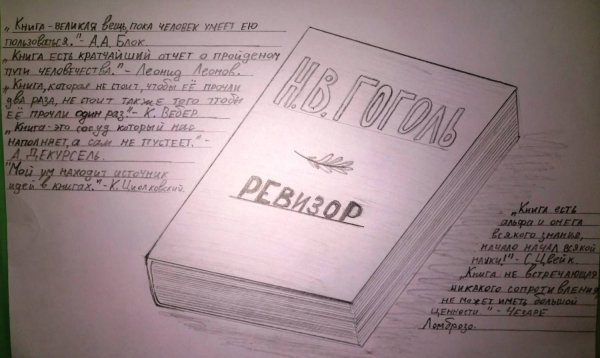 „Книга-великая вещь, пока человек умеет ею
пользоваться."- А.А. Блок.
„Книга есть кратчайший отчет о пройденом
пути человечества."- Леонид Леонов.
„Книга, которая не стоит, чтобы её прочли
два раза, не стоит также того чтобы
её прочли один раз"- К. Вебер.
„Книга-это сосуд который нас
наполняет, а сам не пустеет."-
А. Декурсель.
"Мой ум находит источник
идей в книгах."- К. Циолковский.
Н.В. ГОГОЛЬ
РЕВИЗОР
„Книга есть
альфа и омега
всякого знания,
начало начал всякой
науки!"- С. Цвейг.
„Книга не встречающая
никакого сопротивления
не может иметь большой
ценности."- Чезаре
Ломброзо.